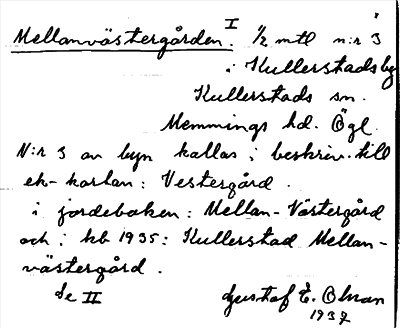 Mellanvästergården. I 1/2 mtl n:r 3
i Kullerstads by
Kullerstads sn.
Memmings hd. Ögl.
N:r 3 av byn kallas i beskriv. till
ek-kartan: Vestergård.
i jordeboken: Mellan-Västergård
och i kb 1935: Kullerstad Mellan-
västergård.
Se II Gustaf E. Olsson
1937